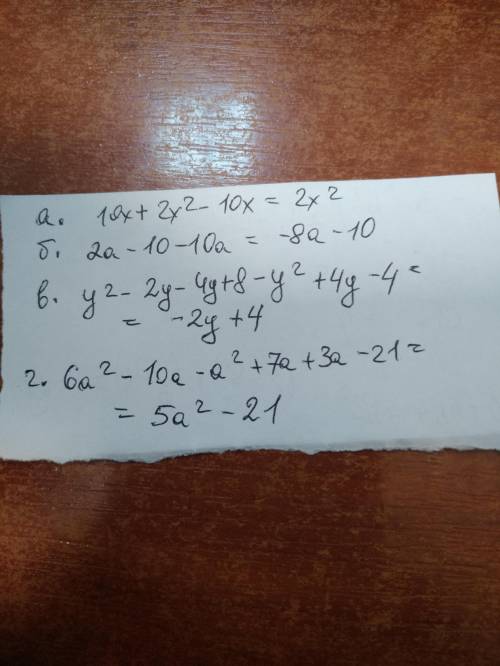 а. 10x + 2x² - 10x = 2x²
б. 2a - 10 - 10a = -8a - 10
в. y² - 2y - 4y + 8 - y² + 4y - 4 =
= -2y + 4
г. 6a² - 10a - a² + 7a + 3a - 21 =
= 5a² - 21